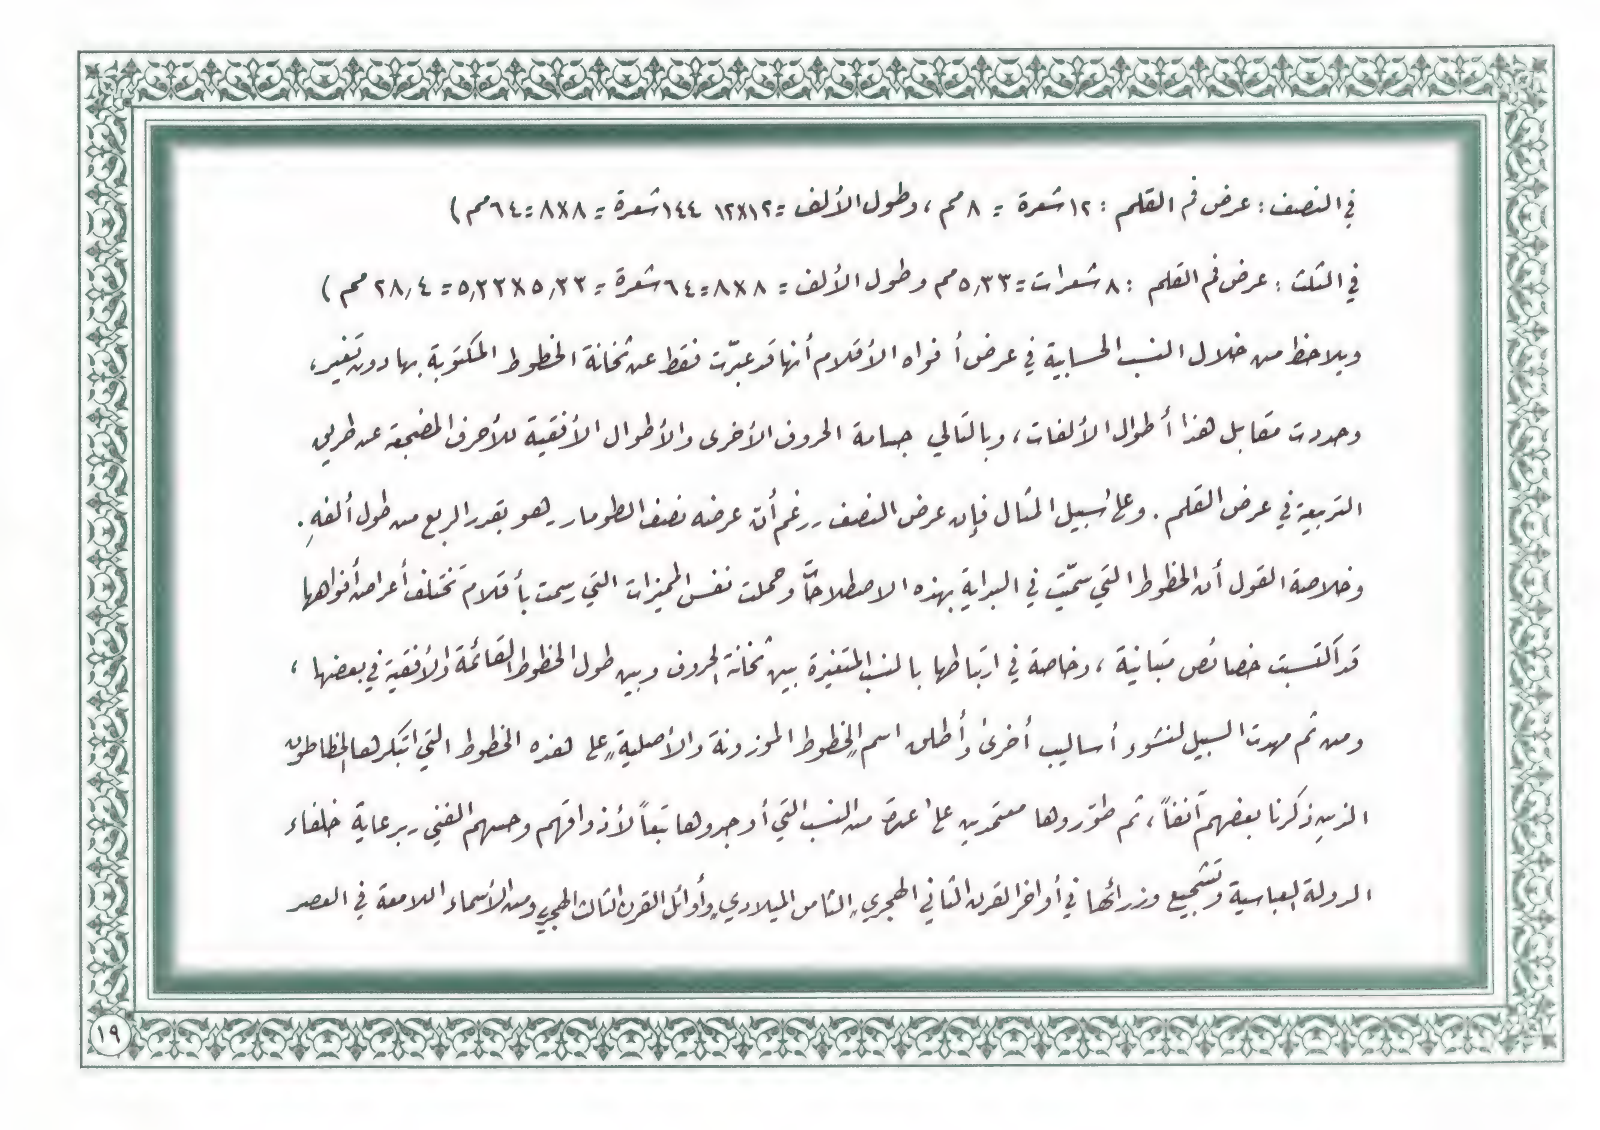 في النصف : عرض فم القلم : ١٢ شعرة = ٨ مم ، وطول الألف = ١٢×١٢ ١٤٤ شعرة = ٨×٨ = ٦٤ مم )
في الثلث : عرض فم القلم : ٨ شعرات = ٥,٣٣ مم وطول الألف = ٨×٨ = ٦٤ شعرة = ٥,٣٣×٥,٣٣ = ٢٨,٤ مم )
ويلاحظ من خلال النسب الحسابية في عرض أفواه الأقلام أنها قد عبّرت فقط عن ثخانة الخطوط المكتوبة بها دون تغيير ،
وحددت مقابل هذا أطوال الألفات ، وبالتالي جسامة الحروف الأخرى والأطوال الأفقية للأحرف المضجعة عن طريق
التربيع في عرض القلم . وعلى سبيل المثال فإن عرض النصف .. رغم أن عرضه نصف الطومار .. هو بقدر الربع من طول ألفهِ .
وخلاصة القول أن الخطوط التي سمّيت في البداية بهذه الاصطلاحات وحملت نفس المميزات التي رسمت بأقلام تختلف أعراض أفواهها
قد اكتسبت خصائص متباينة ، وخاصة في ارتباطها بالنسب المتغيرة بين ثخانة الحروف وبين طول الخطوط القائمة والأفقية في بعضها ،
ومن ثم مهدت السبيل لنشوء أساليب أخرى وأطلق اسم الخطوط الموزونة والأصلية على هذه الخطوط التي ابتكرها الخطاطون
الذين ذكرنا بعضهم آنفاً ، ثم طوّروها معتمدين على أعداد من النسب التي أوجدوها تبعاً لأذواقهم وحسهم الفني .. برعاية خلفاء
الدولة العباسية وتشجيع وزرائها في أواخر القرن الثاني الهجري الثامن الميلادي وأوائل القرن الثالث الهجري ومن الأسماء اللامعة في العصر
١٩